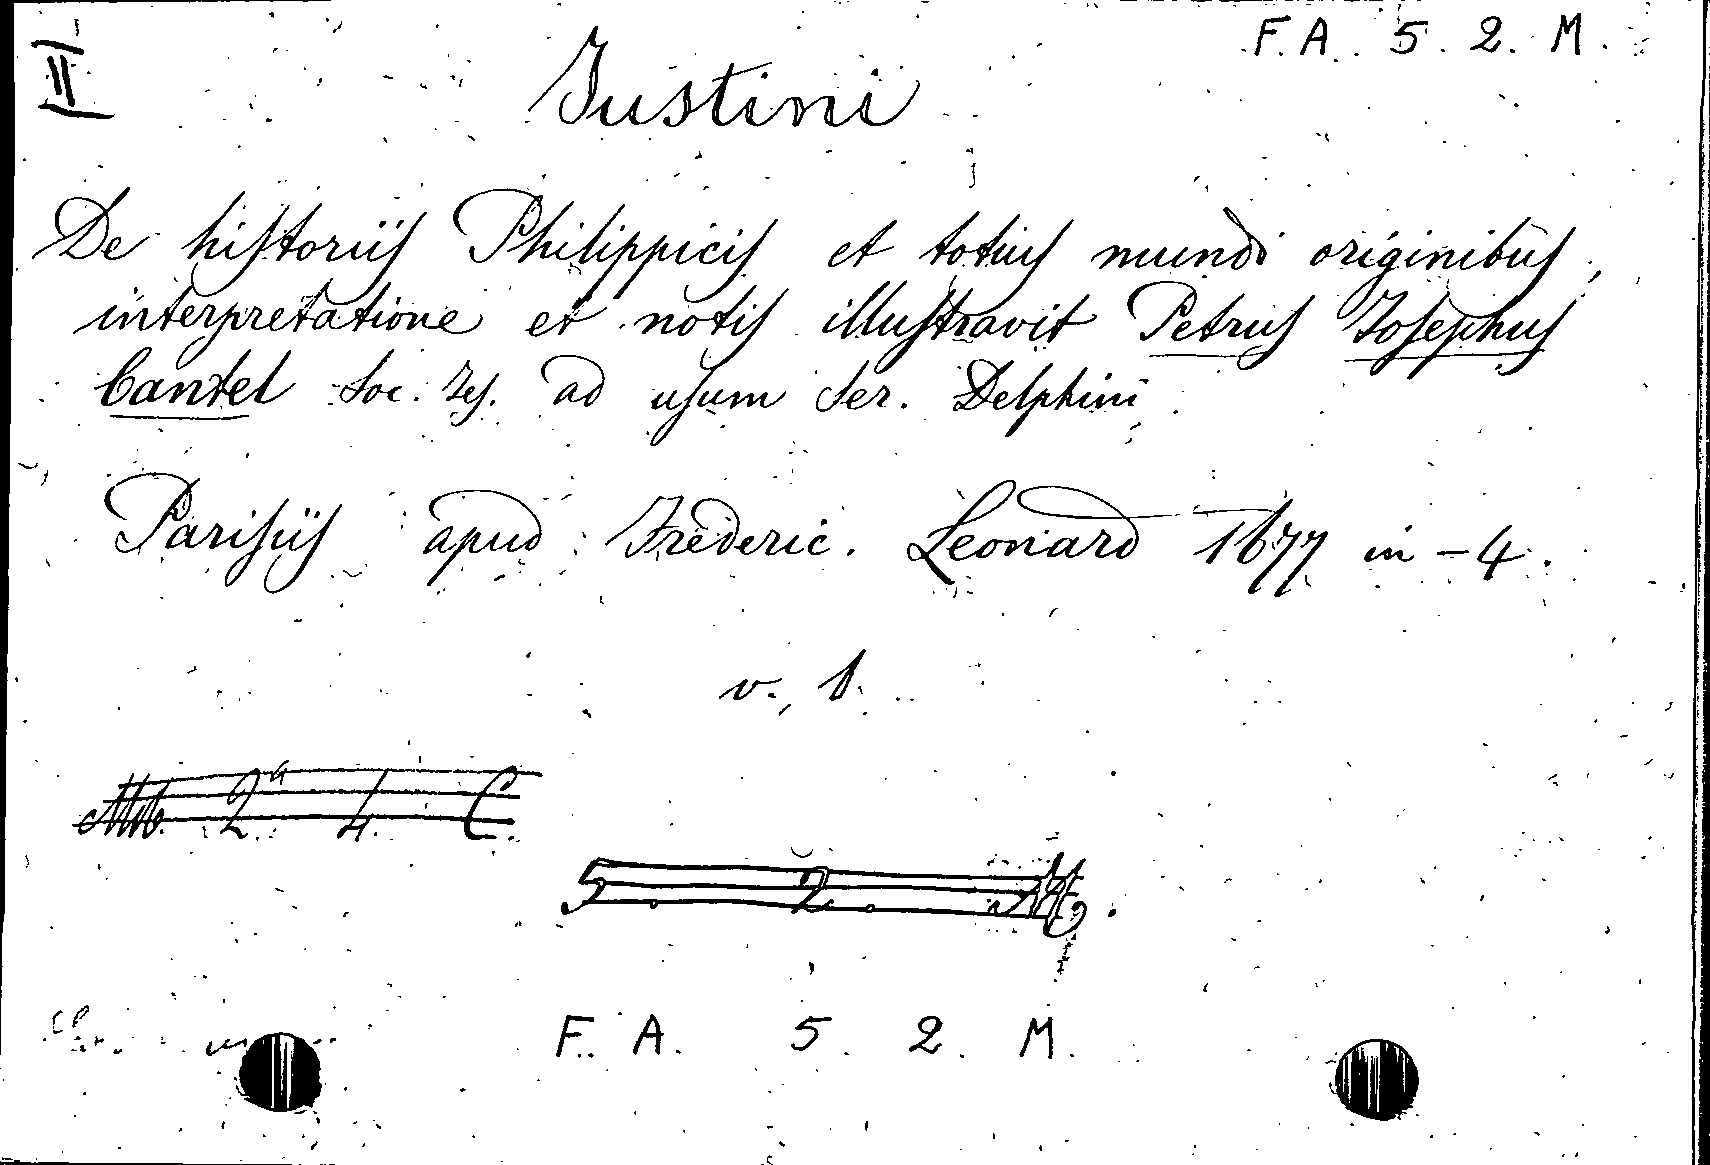 II
F. A. 5. 2. M.
Justini
De historiis Philippicis et totius mundi originibus,
interpretatione et notis illustravit Petrus Josephus
Cantel Soc. Jes. ad usum Ser. Delphini
Parisiis apud Frederic. Leonard 1677 in-4.
v. 1.
2a 4. C.
5. 2. M.
F. A. 5. 2. M.